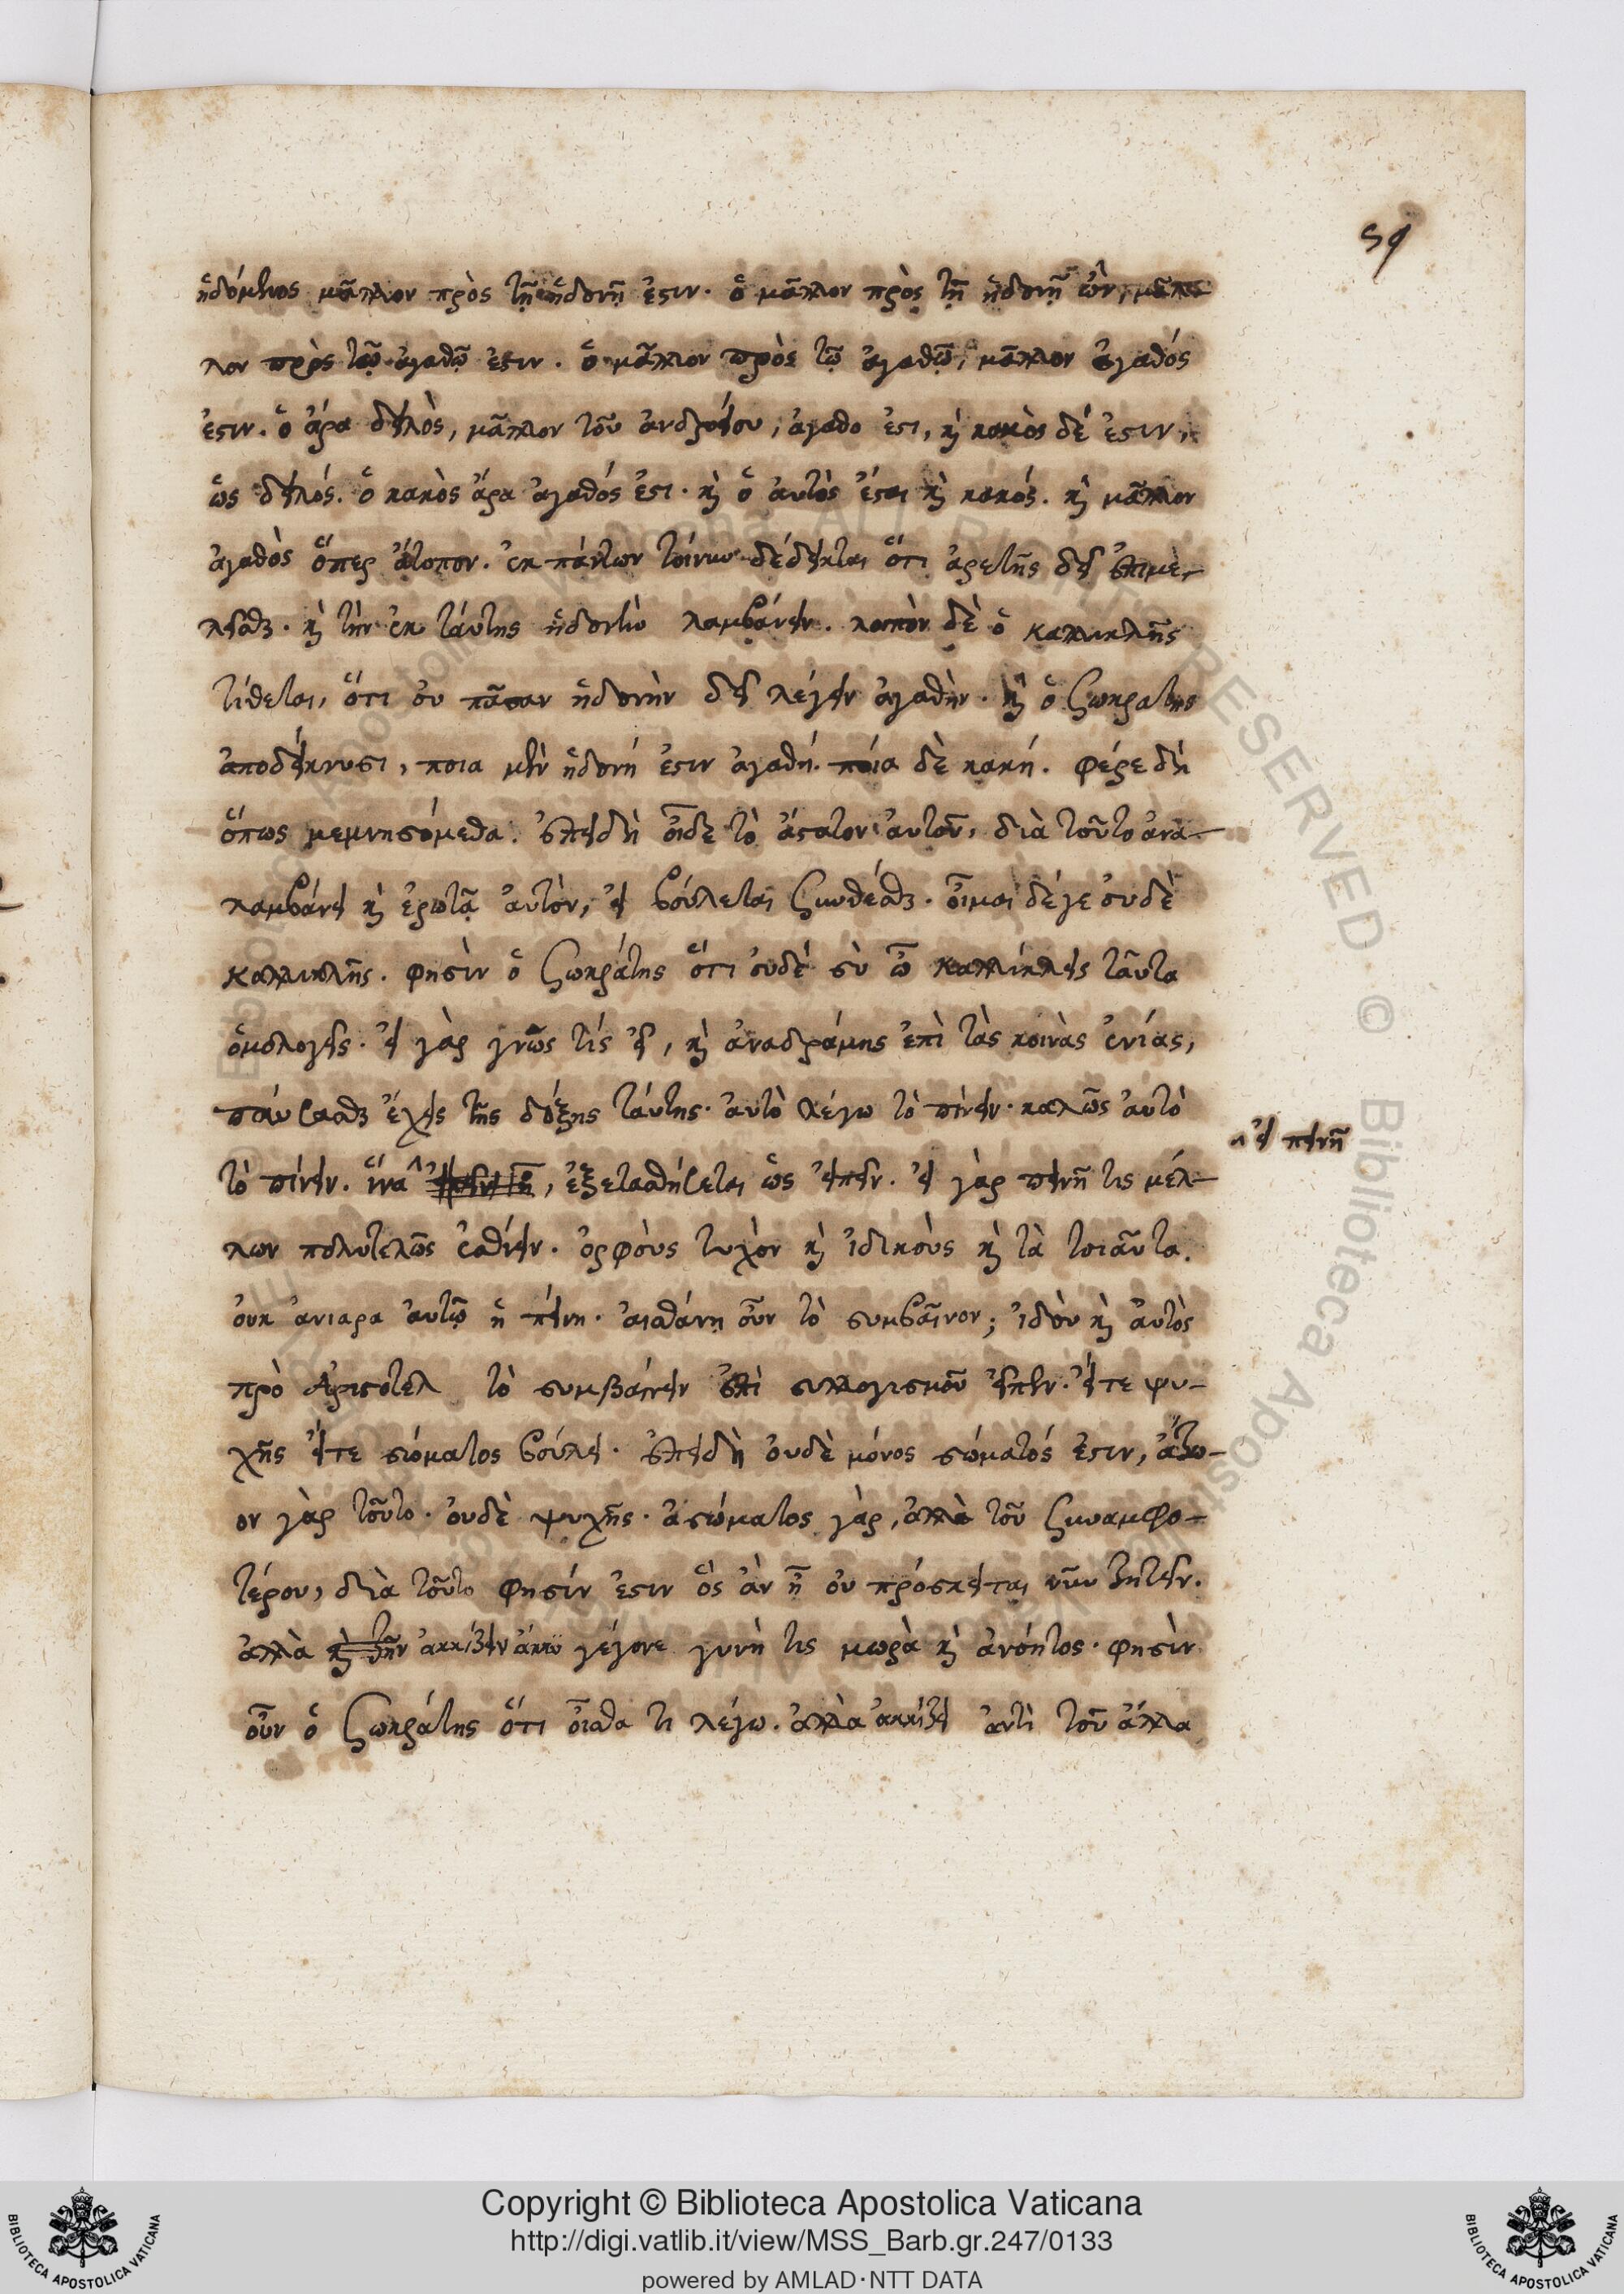 59
ἡδόμενος μᾶλλον πρὸς τῇ ἡδονῇ ἐστιν. ὁ μᾶλλον πρὸς τῇ ἡδονῇ ὢν, μᾶλ-
λον πρὸς τῷ ἀγαθῷ ἐστιν. ὁ μᾶλλον πρὸς τῷ ἀγαθῷ, μᾶλλον ἀγαθός
ἐστιν. ὁ ἄρα δειλὸς, μᾶλλον τοῦ ἀνδρείου, ἀγαθο ἐστι, κὶ κακὸς δέ ἐστιν,
ὡς δειλός. ὁ κακὸς ἄρα ἀγαθός ἐστι. κὶ ὁ ἀυτὸς ἔσται κὶ κακός. κὶ μᾶλλον
ἀγαθὸς ὅπερ ἄτοπον. ἐκ πάντων τοίνυν δέδεικται ὅτι ἀρετῆς δεῖ ἐπιμε-
λεῖσθαι. κὶ τὴν ἐκ ταύτης ἡδονὴν λαμβάνειν. λοιπὸν δὲ ὁ καλλικλῆς
τίθεται, ὅτι ου πᾶσαν ἡδονὴν δεῖ λέγειν ἀγαθὴν. κὶ ὁ Σωκρατης
ἀποδείκνυσι, ποια μὲν ἡδονή ἐστιν ἀγαθή. ποία δὲ κακή. φέρε δὴ
ὅπως μεμνησόμεθα. ἐπειδὴ οἶδε τὸ ἄστατον ἀυτοῦ, διὰ τοῦτο ἀνα-
λαμβάνει κὶ ἐρωτᾷ ἀυτὸν, εἰ βούλεται συνθέσθαι. οἶμαι δέ γε ουδὲ
καλλικλῆς. φησὶν ὁ Σωκράτης ὅτι ουδὲ σὺ ὦ καλλίκλεις ταῦτα
ὁμολογεῖς. εἰ γὰρ γνῶς τίς εἶ, κὶ ἀναδράμης ἐπὶ τὰς κοινὰς ἐννοίας,
παύσασθαι ἔχεις τῆς δόξης ταύτης. ἀυτὸ λέγω τὸ πίνειν. καλῶς ἀυτὸ
εἰ πεινῆ
τὸ πίνειν. ἵνα, ἐξετασθήσεται ὡς εἰπεῖν. εἰ γὰρ πεινῆ τις μέλ-
λων πολυτελῶς ἐσθίειν. ὀρφοὺς τυχὸν κὶ ἰδικοὺς κὶ τὰ τοιαῦτα.
ουκ ἀνιαρα ἀυτῷ ἡ πείνη. ἀισθάνη οὖν τὸ συμβαῖνον; ἰδοὺ κὶ ἀυτὸς
πρὸ Ἀριστοτελ τὸ συμβαίνειν ἐπὶ συλλογισμοῦ εἶπεν. εἴτε ψυ-
χῆς εἴτε σώματος βούλει. ἐπειδὴ ουδὲ μόνος σώματός ἐστιν, ἄζω-
ον γὰρ τοῦτο. ουδὲ ψυχῆς. ἀσώματος γὰρ, ἀλλὰ τοῦ συναμφο-
τέρου, διὰ τοῦτο φησίν ἐστιν ὃς ἂν ῇ ου πρόσκειται νῦν ζητεῖν.
ἀλλὰ ἀκκίζειν γέγονε γυνὴ τις μωρὰ κὶ ἀνόητος. φησὶν
οὖν ὁ Σωκράτης ὅτι οἶσθα τι λέγω. ἀλλὰ ἀκκίζει ἀντὶ τοῦ ἀλλα
Copyright © Biblioteca Apostolica Vaticana
http://digi.vatlib.it/view/MSS_Barb.gr.247/0133
powered by AMLAD·NTT DATA